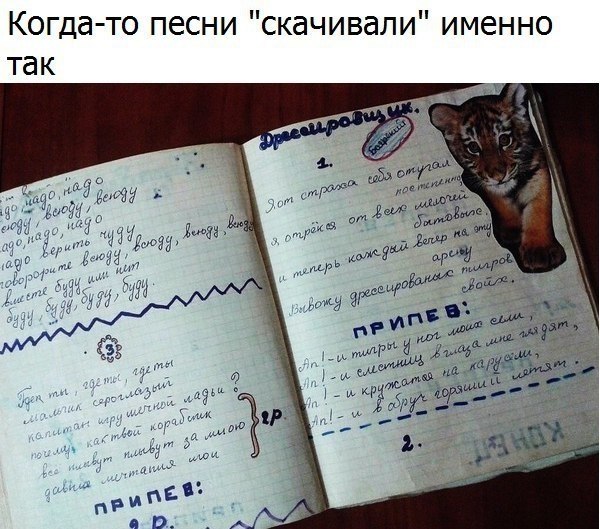 Когда-то песни "скачивали" именно
так
надо, надо
всюду, всюду
надо, надо, надо
надо верить чуду
говорорите всюду, всюду, всюду, всюду
вместе буду или нет
буду, буду, буду, буду.
3
Где ты, где ты, где ты
мальчик сероглазый
капитан игрушечной ладьи?
почему, как твой кораблик
всё плывут плывут за мною
давние мечтания мои
2р.
ПРИПЕВ:
2 р.
Дрессировщик.
1.
Я от страха себя отучал
постепенно
я, отрёкся от всех мелочей
бытовых.
и теперь каждый вечер на эту
арену
Вывожу дрессированых тигров
своих.
ПРИПЕВ:
Ап! - и тигры у ног моих сели,
Ап! - и с лестниц в глаза мне глядят,
Ап! - и кружатся на карусели,
Ап! - и в обруч горящий летят.
2.
КОНЕЦ